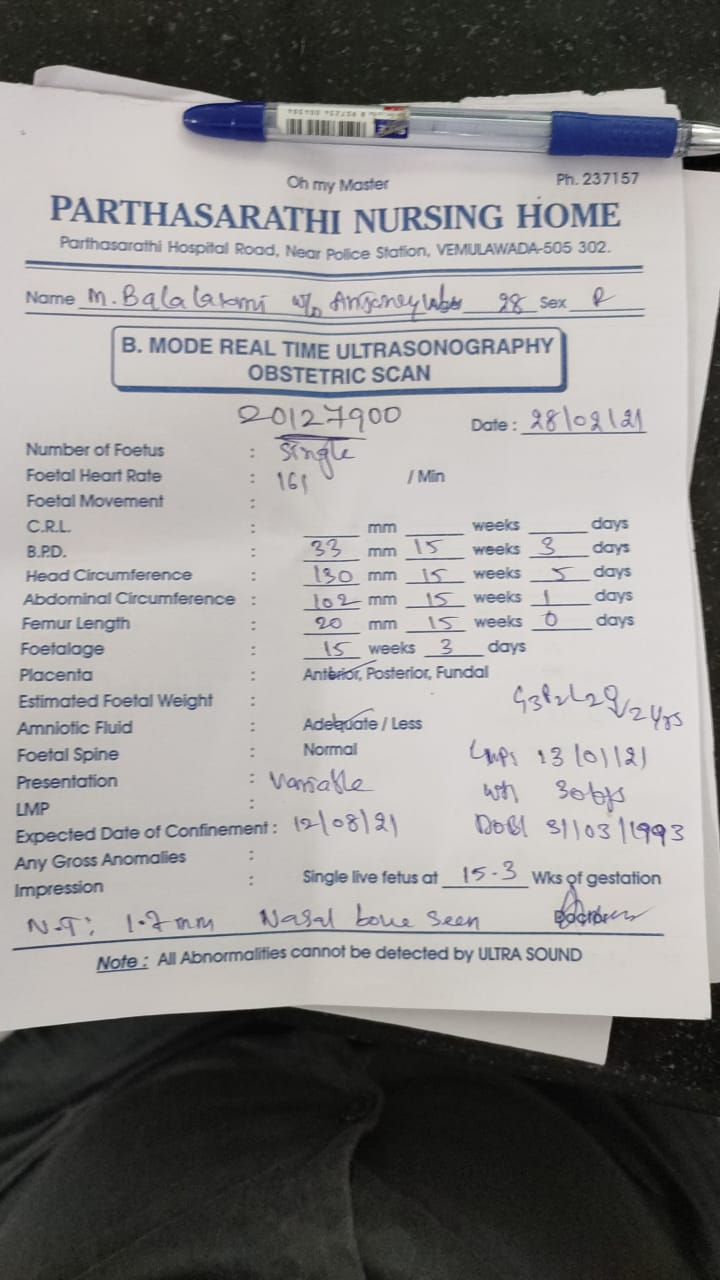 Oh my Master
Ph. 237157
PARTHASARATHI NURSING HOME
Parthasarathi Hospital Road, Near Police Station, VEMULAWADA-505 302.
Name M. Balalaxmi w/o 28 Sex
B. MODE REAL TIME ULTRASONOGRAPHY
OBSTETRIC SCAN
20127900
Date : 28/02/21
Number of Foetus : Single
Foetal Heart Rate : 161 / Min
Foetal Movement :
C.R.L. : mm weeks days
B.P.D. : 33 mm 15 weeks 3 days
Head Circumference : 130 mm 15 weeks 5 days
Abdominal Circumference : 102 mm 15 weeks 1 days
Femur Length : 20 mm 15 weeks 0 days
Foetalage : 15 weeks 3 days
Placenta : Anterior, Posterior, Fundal
Estimated Foetal Weight :
G3P2L2
Amniotic Fluid : Adequate / Less
Foetal Spine : Normal
13/01/21
Presentation : Variable
LMP :
Expected Date of Confinement : 12/08/21
31/03/1993
Any Gross Anomalies :
Impression : Single live fetus at 15-3 Wks of gestation
N.T: 1.7mm Nasal bone seen
Note : All Abnormalities cannot be detected by ULTRA SOUND